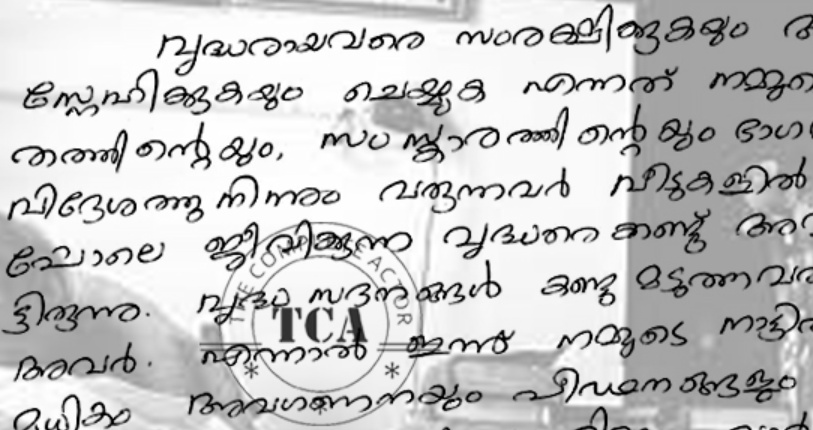 വൃദ്ധരായവരെ സംരക്ഷിക്കുകയും
സ്നേഹിക്കുകയും ചെയ്യുക എന്നത് നമ്മുടെ
തത്തിന്റെയും, സംസ്കാരത്തിന്റെയും ഭാഗ
വിദ്ദേശത്തു നിന്നും വരുന്നവർ വീടുകളിൽ
പോലെ ജീവിക്കുന്ന വൃദ്ധരെ കണ്ട് അ
ട്ടിരുന്നു. വൃദ്ധ സദനങ്ങൾ കണ്ടു മടുത്തവ
അവർ. എന്നാൽ ഇന്ന് നമ്മുടെ നാട്ടി
മധികം അവഗണനയും പീഡനങ്ങളും
THE COMPLETE ACTOR
TCA